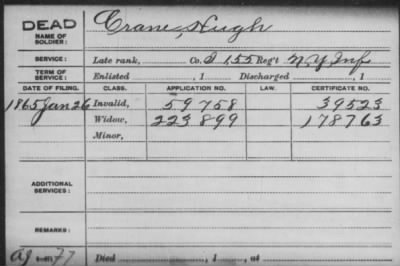 DEAD
NAME OF SOLDIER: Crane, Hugh
SERVICE: Late rank, Co. I, 155 Reg't N.Y. Inf
TERM OF SERVICE: Enlisted , 1 Discharged , 1
DATE OF FILING. CLASS. APPLICATION NO. LAW. CERTIFICATE NO.
1865 Jan 26 Invalid, 59758 39523
Widow, 223899 178763
Minor,
ADDITIONAL SERVICES:
REMARKS:
77 Died , 1 , at